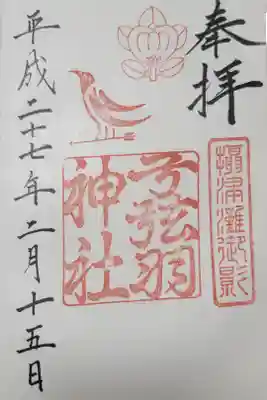 奉拝
攝津灘御影
弓弦羽
神社
平成二十七年二月十五日